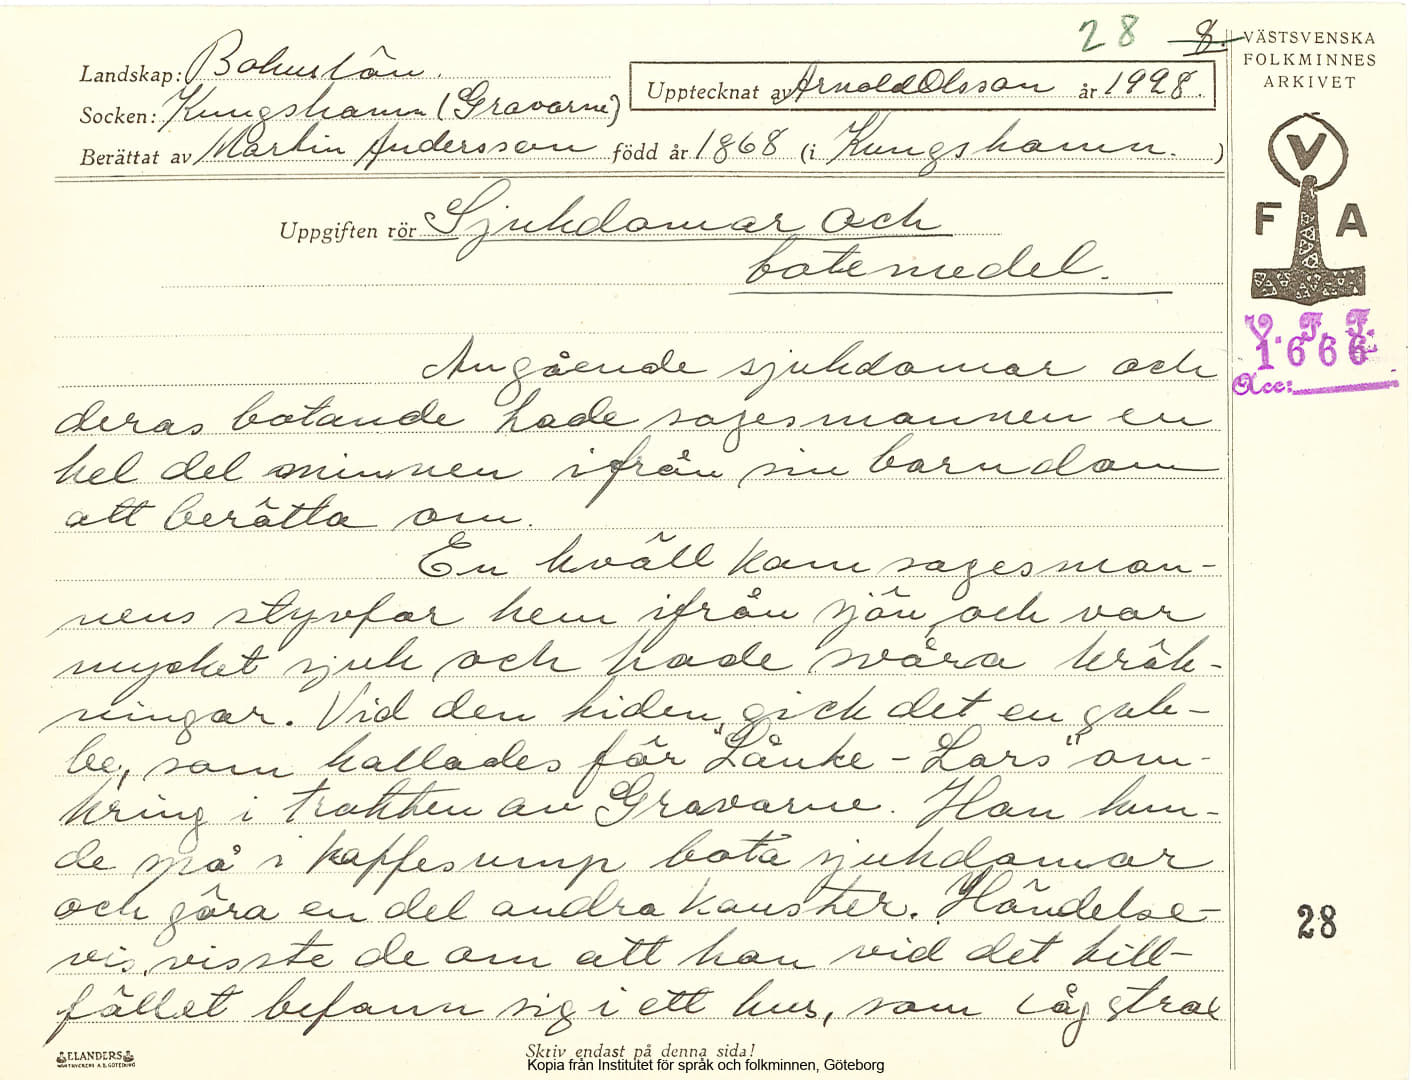 28 8.
VÄSTSVENSKA
FOLKMINNES
ARKIVET
Landskap: Bohuslän.
Socken: Kungshamn (Gravarne)
Upptecknat av Arnold Olsson år 1928.
Berättat av Martin Andersson född år 1868 (i Kungshamn. )
V
F A
Uppgiften rör Sjukdomar och
botemedel.
V. F. F.
1666
Acc:
Angående sjukdomar och
deras botande hade sagesmannen en
hel del minnen ifrån sin barndom
att berätta om.
En kväll kom sagesman-
nens styvfar hem ifrån sjön, och var
mycket sjuk och hade svåra kräk-
ningar. Vid den tiden, gick det en gub-
be, som kallades för "Lånke-Lars" om-
kring i trakten av Gravarne. Han kun-
de spå i kaffesump bota sjukdomar
och göra en del andra konster. Händelse-
vis, visste de om att han vid det till-
fället befann sig i ett hus, som låg strax
28
ELANDERS
Skriv endast på denna sida!
Kopia från Institutet för språk och folkminnen, Göteborg